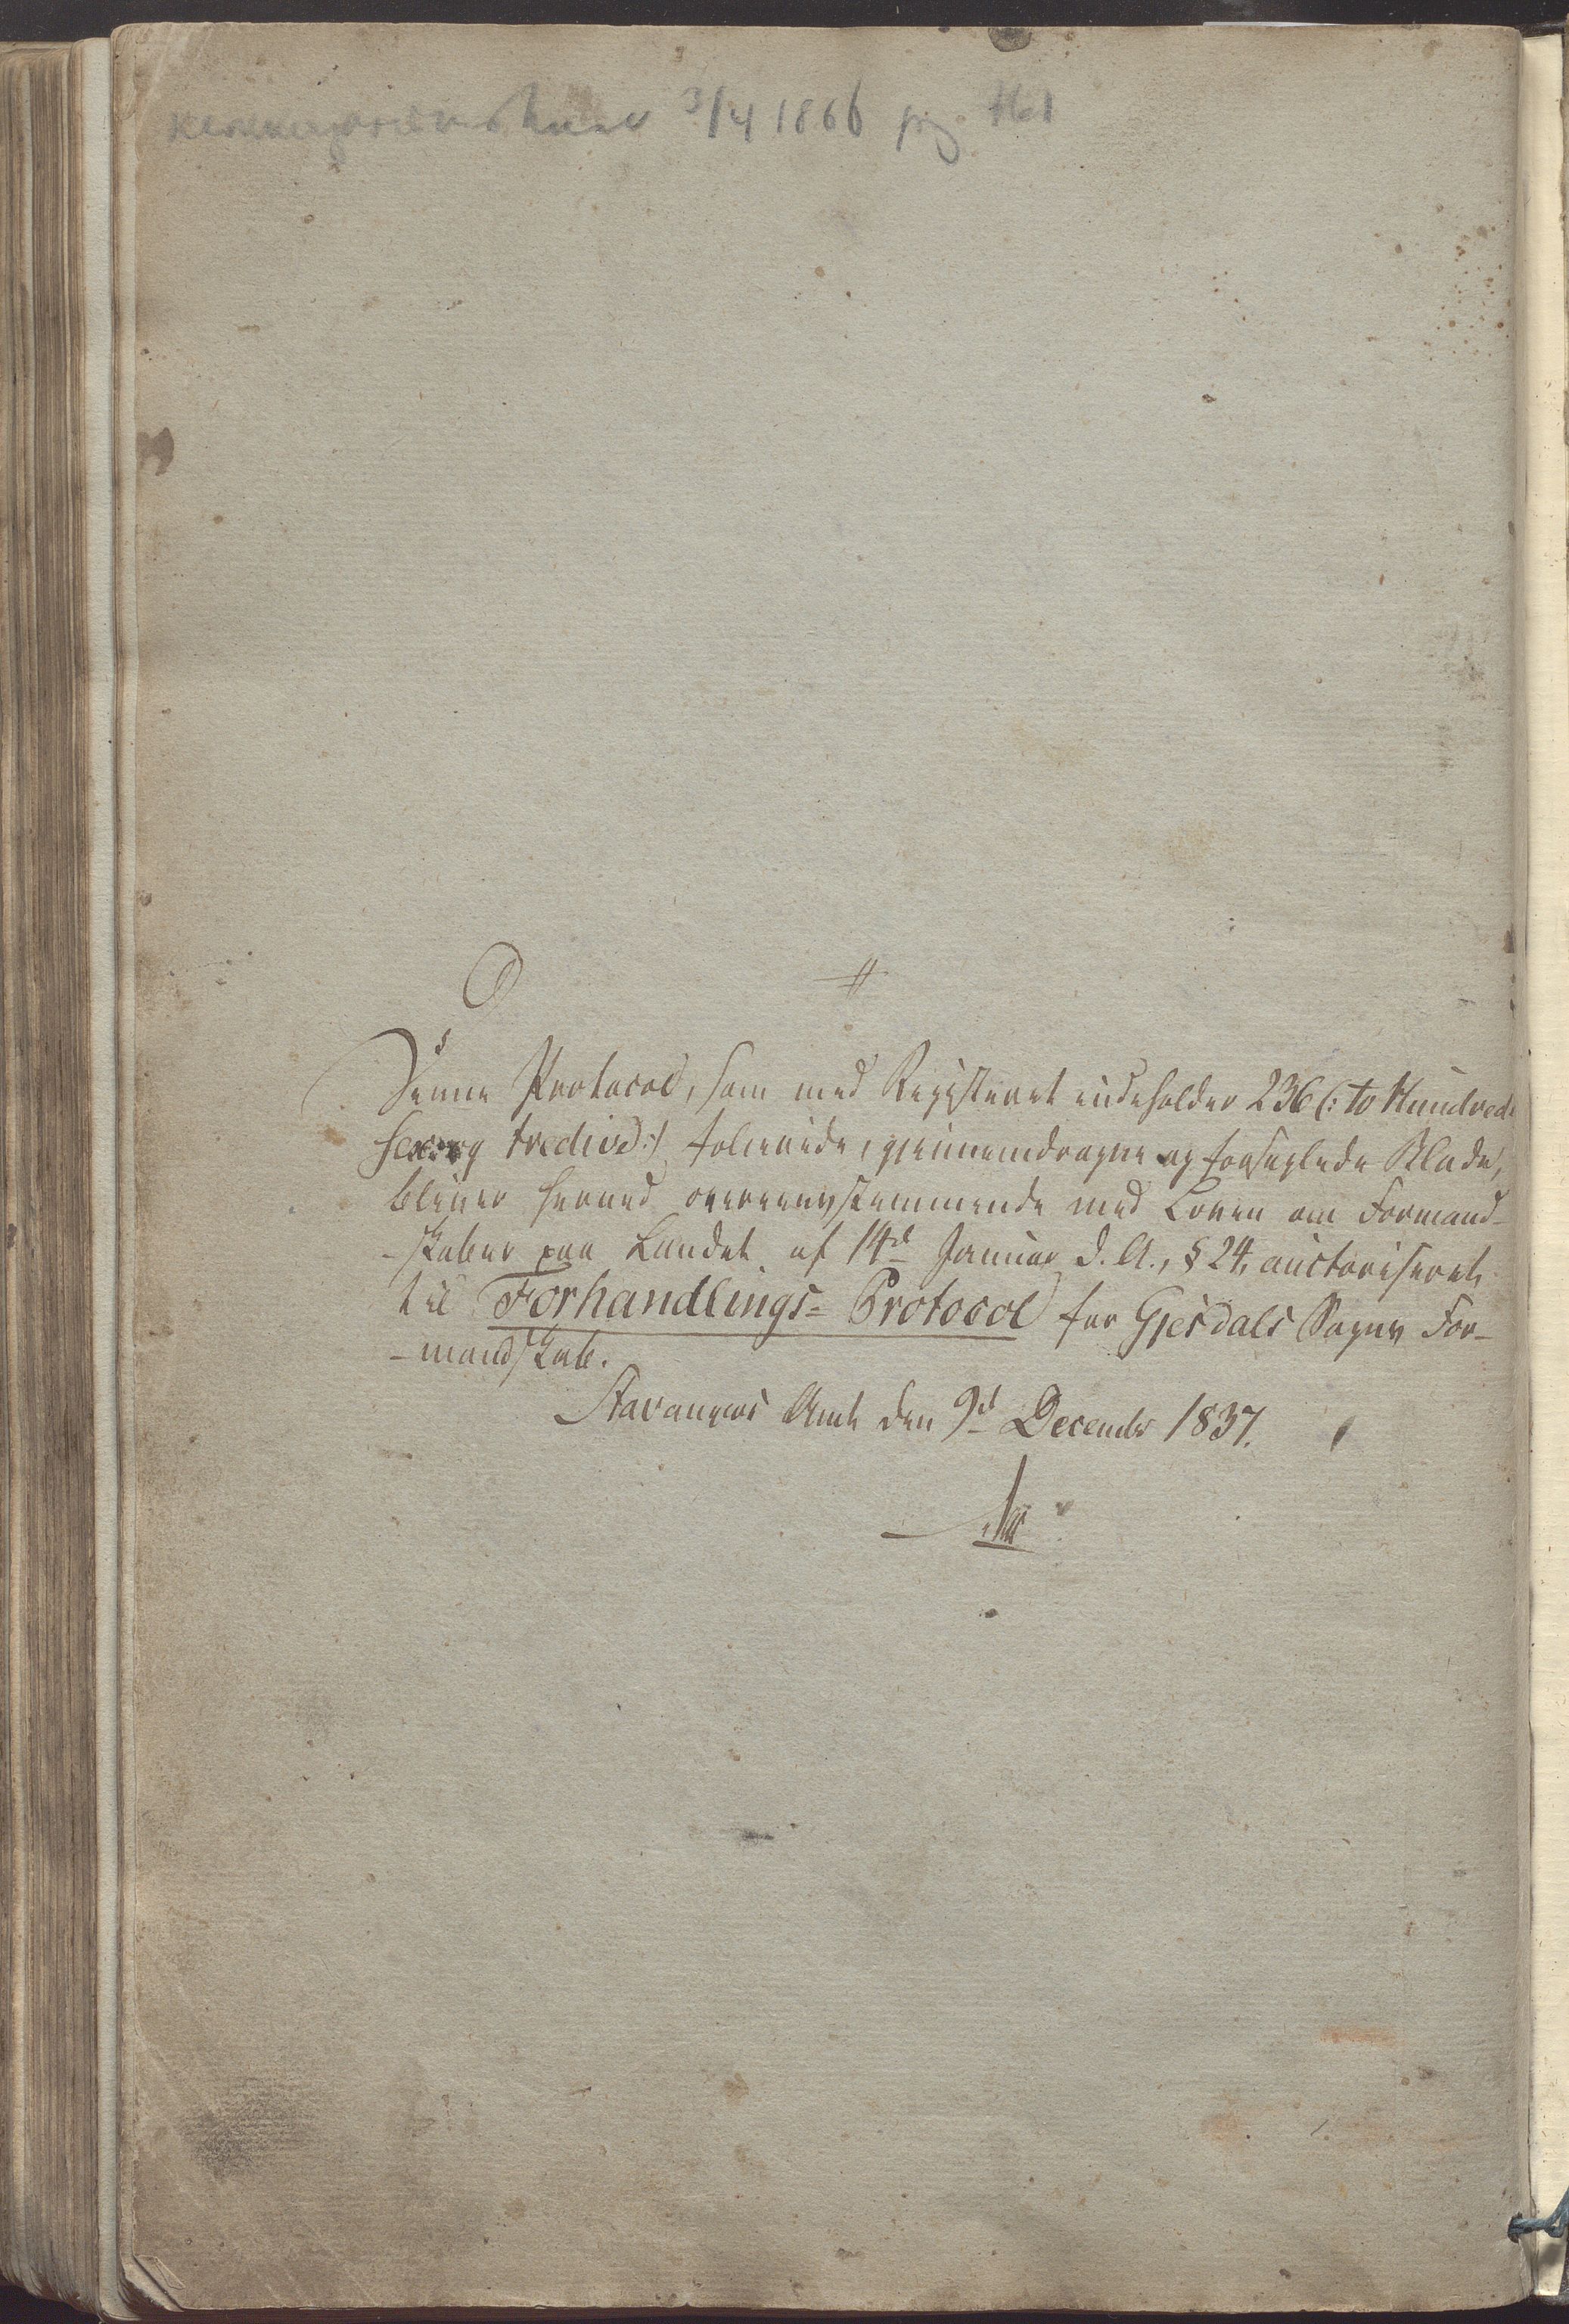 3/4 1866 pag. 161
Denne Protocol, som med Registeret indeholder 236 (: to Hundrede
sex og tredive :) folierede, gjennemdragne og forseglede Blade,
bliver herved overeensstemmende med Loven om Formand-
-skaber paa Landet af 14de Januar d. A., § 24, auctoriseret
til Forhandlings=Protocol for Gjesdals Sogns For-
-mandskab.
Stavangers Amt den 9de Decembr 1837.